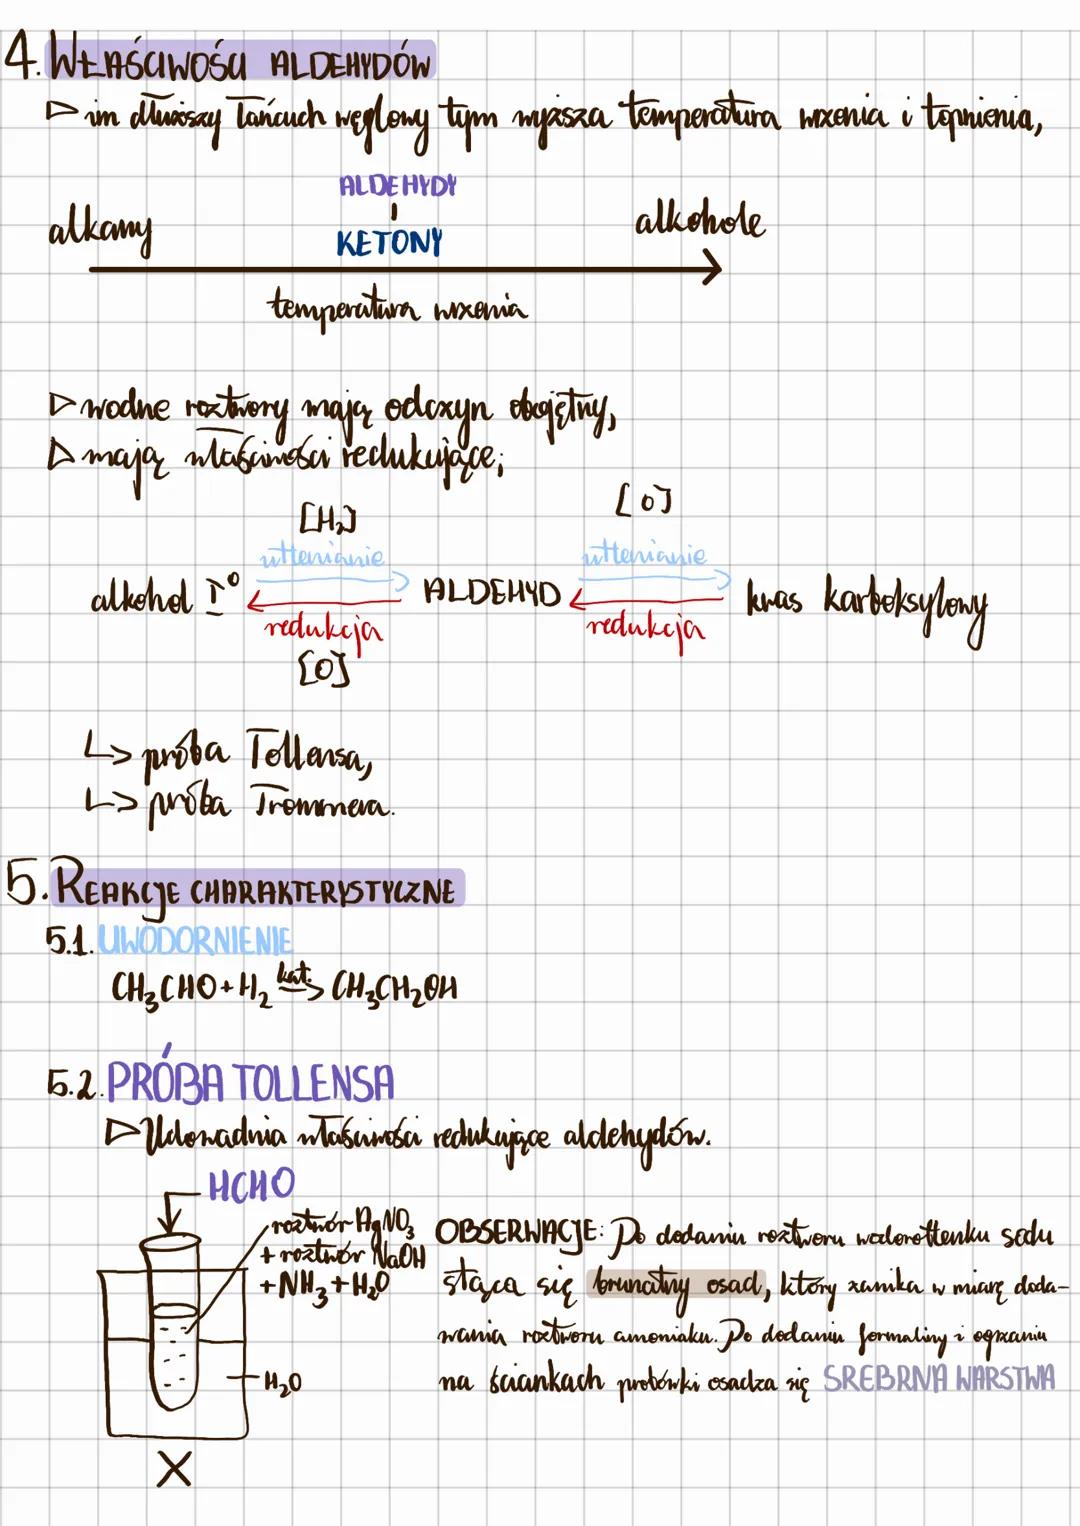 4. WŁAŚCIWOŚCI ALDEHYDÓW
▷ im dłuższy łańcuch węglowy tym wyższa temperatura wrzenia i topnienia,
ALDEHYDY
alkany
KETONY
alkohole
temperatura wrzenia
▷ wodne roztwory mają odczyn obojętny,
▷ mają właściwości redukujące;
[H₂] [O]
utlenianie utlenianie
alkohol I° ALDEHYD kwas karboksylowy
redukcja redukcja
[O]
↳ próba Tollensa,
↳ próba Trommera.
5. REAKCJE CHARAKTERYSTYCZNE
5.1. UWODORNIENIE
CH₃CHO + H₂ kat.→ CH₃CH₂OH
5.2. PRÓBA TOLLENSA
▷ Udowadnia właściwości redukujące aldehydów.
HCHO
roztwór AgNO₃
+ roztwór NaOH
+ NH₃ + H₂O
H₂O
X
OBSERWACJE: Po dodaniu roztworu wodorotlenku sodu
strąca się brunatny osad, który zanika w miarę doda-
wania roztworu amoniaku. Po dodaniu formaliny i ogrzaniu
na ściankach probówki osadza się SREBRNA WARSTWA